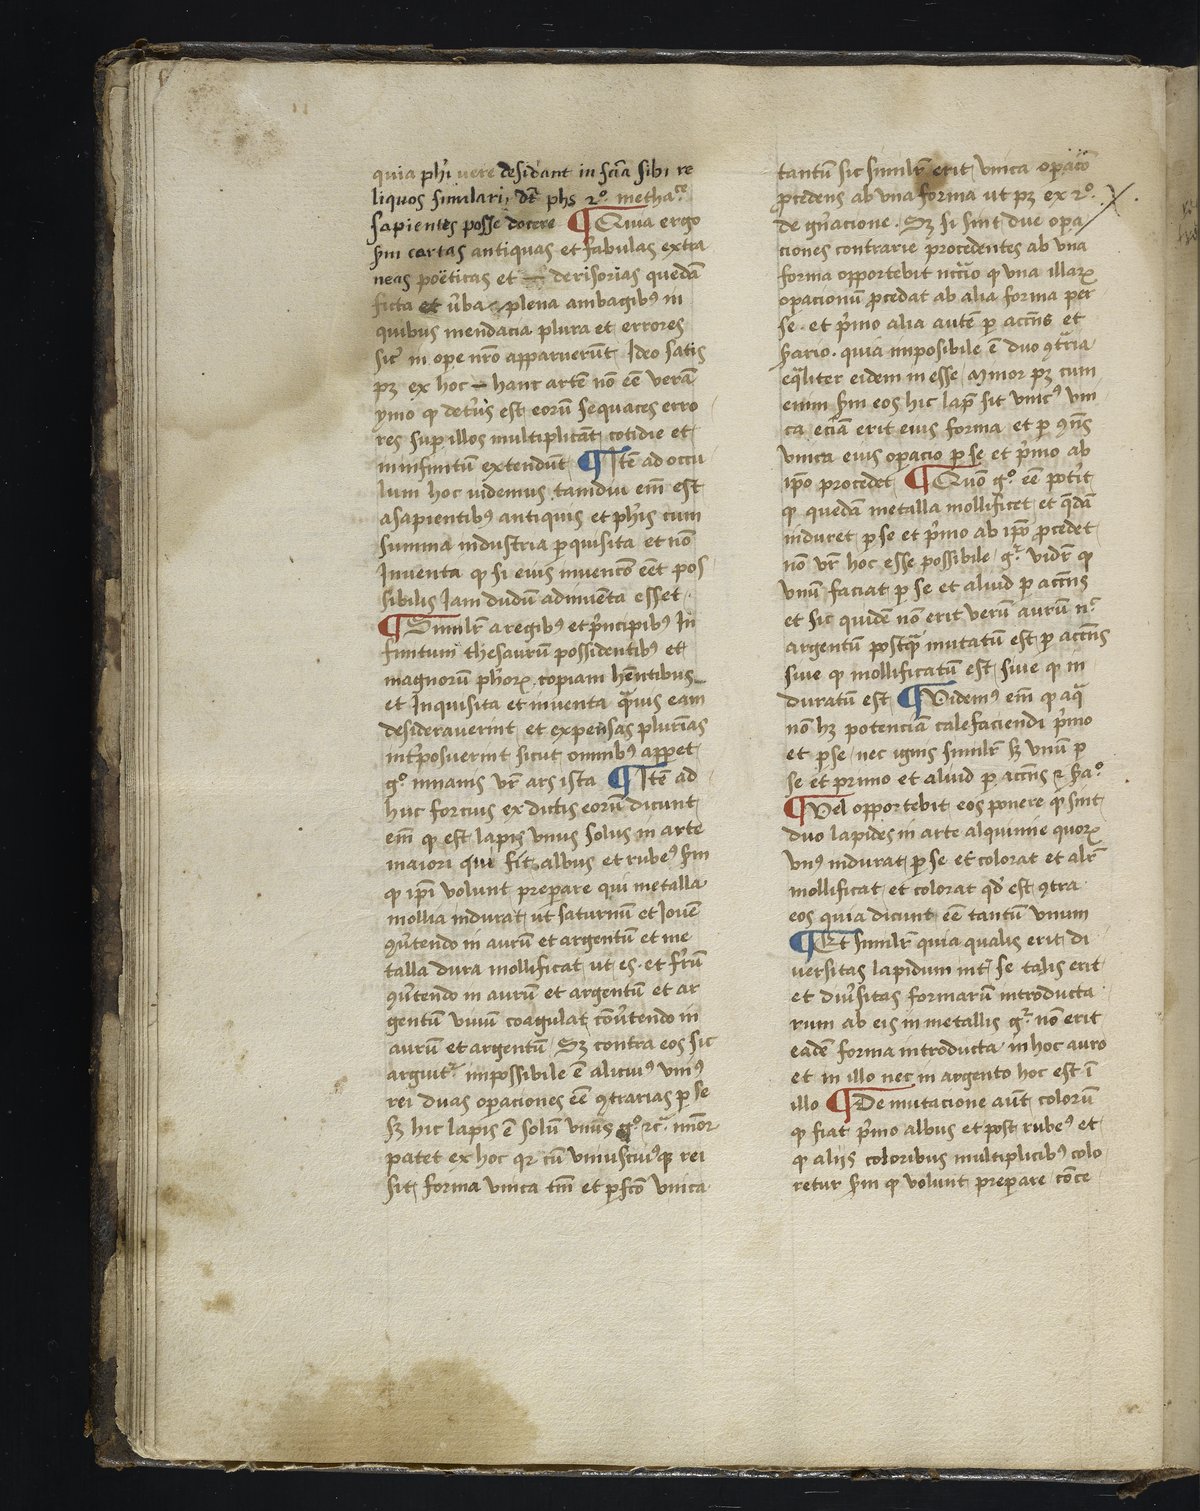 quia phi vere desidant in scīa sibi re
liquos similari, dt̄ phs 2º metha.ce
sapientes posse docere ¶ Quia ergo
scm certas antiquas et fabulas extra
neas poëticas et derisorias quedā
ficta et v̄ba plena ambagibꝰ in
quibus mendacia plura et errores
sic̄ in ope nr̄o apparuerūt Ideo satis
pꝫ ex hoc hanc artē nō eē verā
ymo ꝙ det̄ius est eorū sequaces erro
res sup illos multiplicāt cotidie et
in infinitū extendūt ¶ Itē ad occu
lum hoc videmus tamdiu em̄ est
a sapientibꝰ antiquis et ph̄is cum
summa industria ꝑquisita et nō
Inventa ꝙ si eius invencō eēt pos
sibilis Iam dudū adinventa esset
¶ Similr̄ a regibꝰ et p̄ncipibus In
finitum thesaurū possidentibꝰ et
magnorū ph̄oꝝ copiam hēntibus
et Inquisita et inventa q̄vis eam
desideraverint et expensas plurīas
int̄posuerint sicut omnibꝰ appet
gº innanis vr̄ ars ista ¶ Itē ad
huc forcius ex dictis eorū dicunt
em̄ ꝙ est lapis vnus solus in arte
maiori qui fit albus et rubeꝰ scm
ꝙ ip̄i volunt preparare qui metalla
mollia indurat ut saturnū et Iovē
ꝯv̄tendo in aurū et argentū et me
talla dura mollificat ut es et fr̄ū
ꝯv̄tendo in aurū et argentū et ar
gentū vivū coagulat cōv̄tendo in
aurū et argentū Sꝫ contra eos sic
arguit̄ impossibile ē alicuiꝰ vniꝰ
rei duas opaciones eē ꝯtrarias ꝑ se
Sꝫ hic lapis ē solū vnus gº rc̄ minor
patet ex hoc qꝛ cū vniuscuiꝰqꝫ rei
sit forma vnica tm̄ et ꝑfcō vnica
tantū sic similr̄ erit vnica opacō
ꝓcedens ab vna forma ut pꝫ ex 2º
de gn̄acione. Sꝫ si sint due opa
ciones contrarie procedentes ab vna
forma opportebit nccīo ꝙ vna illaꝝ
opacionū ꝓcedat ab alia forma per
se et p̄mo alia autē ꝑ accn̄s et
scd̄ario. quia imposibile ē duo ꝯtraria
eq̄liter eidem in esse Minor pꝫ cum
enim scm eos hic lap̄ sit vnicꝰ vni
ca eciā erit eius forma et ꝑ ꝯn̄s
vnica eius opacio ꝑ se et p̄mo ab
ip̄o procedet ¶ Quō gº eē potit
ꝙ quedā metalla mollificet et q̄dā
induret ꝑ se et p̄mo ab ip̄o ꝓcedet
nō vr̄ hoc esse possibile g̊ vidr̄ ꝙ
vnū faciat ꝑ se et aliud ꝑ accn̄s
et sic quidē nō erit verū aurū n̄c
argentū postq̄ mutatū est ꝑ accn̄s
sive ꝙ mollificatū est sive ꝙ in
duratū est ¶ Videmꝰ em̄ ꝙ aq̄
nō hꝫ potenciā calefaciendi p̄mo
et ꝑ se nec ignis similr̄ sꝫ vnū ꝑ
se et primo et aliud ꝑ accn̄s
¶ Vel opportebit eos ponere ꝙ sint
duo lapides in arte alquimie quoꝝ
vnꝰ indurat ꝑ se et colorat et alr̄
mollificat et colorat qd̄ est ꝯtra
eos quia dicunt eē tantū vnum
¶ Et similr̄ quia qualis erit di
versitas lapidum int̄ se talis erit
et div̄sitas formarū introducta
rum ab eis in metallis g̊ nō erit
eadē forma introducta in hoc auro
et in illo nec in argento hoc est ī
illo ¶ De mutacione aūt colorū
ꝙ fiat p̄mo albus et post rubeꝰ et
ꝙ aliis coloribus multiplicibꝰ colo
retur scm ꝙ volunt preparare cōce